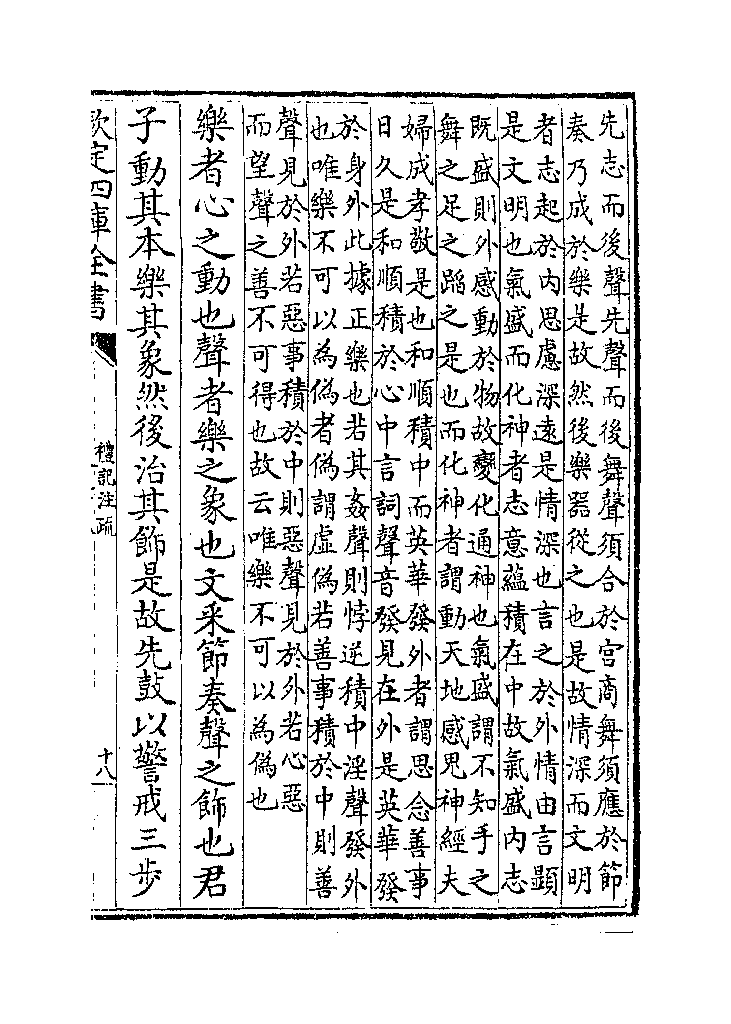 先志而後聲先聲而後舞聲須合於宮商舞須應於節
奏乃成於樂是故然後樂器從之也是故情深而文明
者志起於内思慮深遠是情深也言之於外情由言顯
是文明也氣盛而化神者志意蘊積在中故氣盛内志
既盛則外感動於物故變化通神也氣盛謂不知手之
舞之足之蹈之是也而化神者謂動天地感鬼神經夫
婦成孝敬是也和順積中而英華發外者謂思念善事
日久是和順積於心中言詞聲音發見在外是英華發
於身外此據正樂也若其姦聲則悖逆積中淫聲發外
也唯樂不可以為偽者偽謂虛偽若善事積於中則善
聲見於外若惡事積於中則惡聲見於外若心惡
而望聲之善不可得也故云唯樂不可以為偽也
樂者心之動也聲者樂之象也文采節奏聲之飾也君
子動其本樂其象然後治其飾是故先鼓以警戒三步
欽定四庫全書
禮記注疏
十八